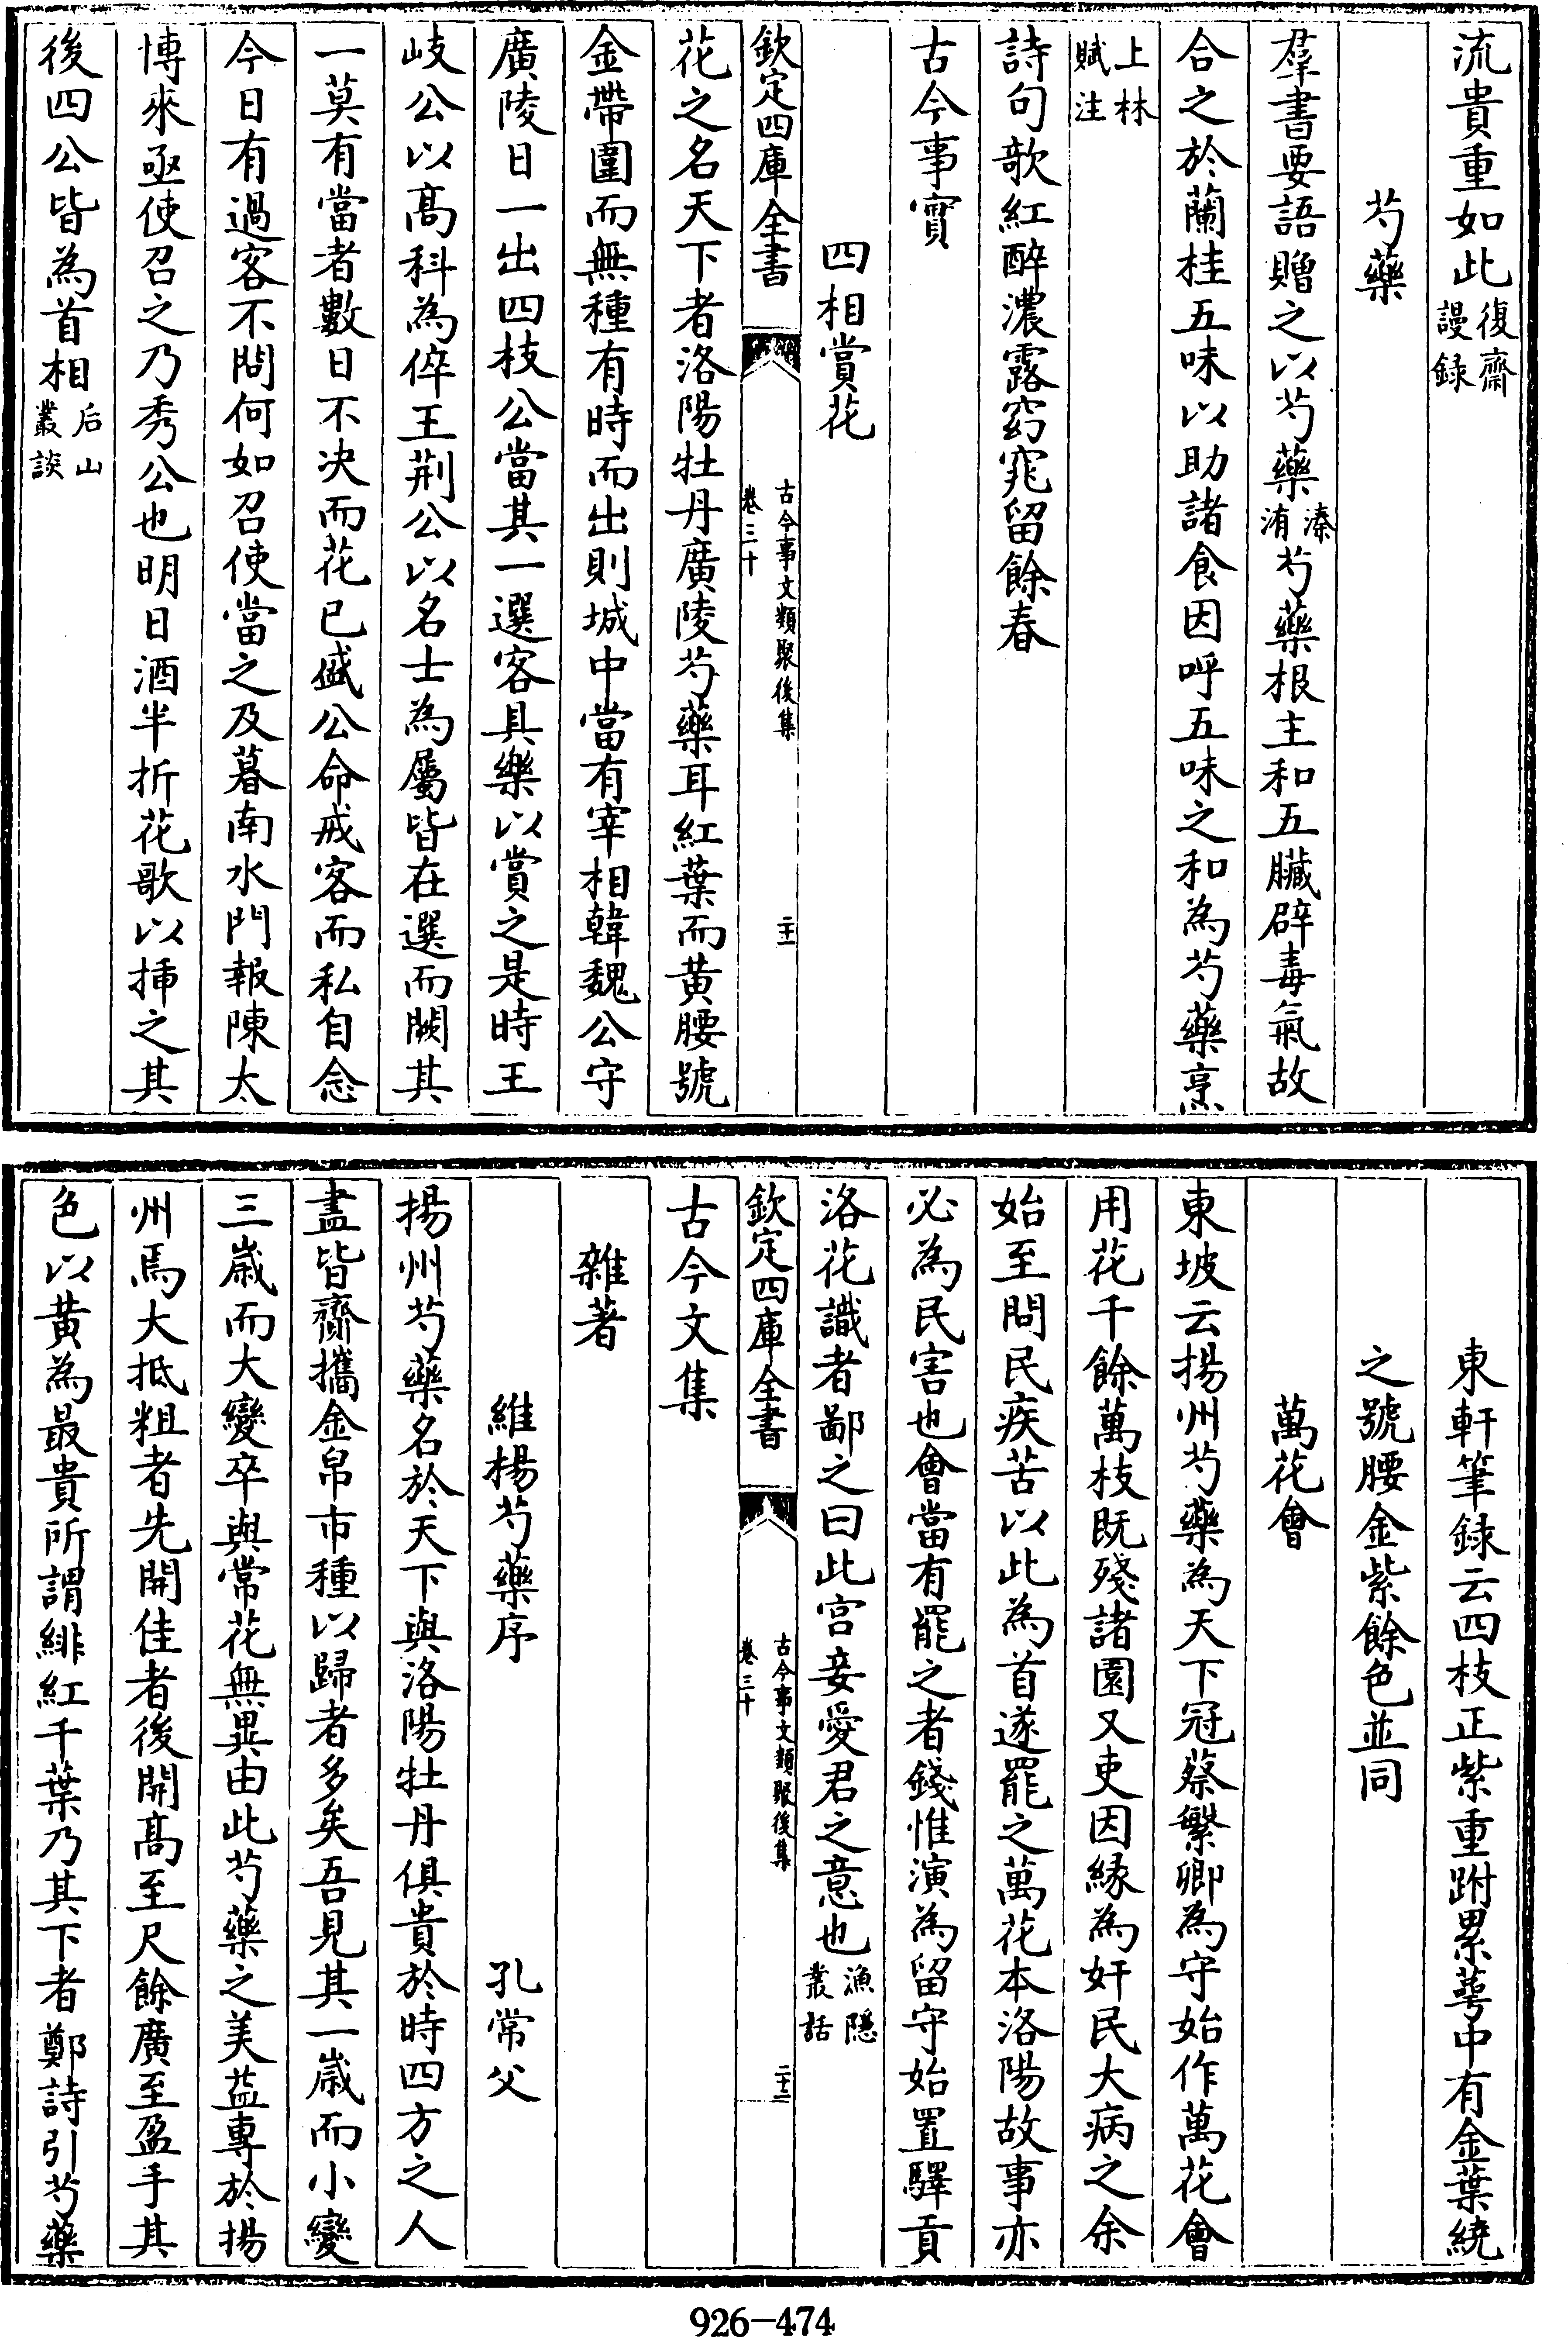 流貴重如此復齋謾録
芍藥
羣書要語贈之以芍藥溱洧芍藥根主和五臟辟毒氣故
合之於蘭桂五味以助諸食因呼五味之和為芍藥烹
上林賦注
詩句欹紅醉濃露窈窕留餘春
古今事實
四相賞花
欽定四庫全書 古今事文類聚後集 卷三十 二十一
花之名天下者洛陽牡丹廣陵芍藥耳紅葉而黄腰號
金帶圍而無種有時而出則城中當有宰相韓魏公守
廣陵日一出四枝公當其一選客具樂以賞之是時王
岐公以髙科為倅王荆公以名士為屬皆在選而闕其
一莫有當者數日不决而花已盛公命戒客而私自念
今日有過客不問何如召使當之及暮南水門報陳太
博來亟使召之乃秀公也明日酒半折花歌以揷之其
後四公皆為首相后山叢談
東軒筆録云四枝正紫重跗累萼中有金葉繞
之號腰金紫餘色並同
萬花會
東坡云揚州芍藥為天下冠蔡繁卿為守始作萬花會
用花千餘萬枝既殘諸園又吏因緣為奸民大病之余
始至問民疾苦以此為首遂罷之萬花本洛陽故事亦
必為民害也會當有罷之者錢惟演為留守始置驛貢
洛花識者鄙之曰此宫妾愛君之意也漁隠叢話
欽定四庫全書 古今事文類聚後集 卷三十 二十二
古今文集
雜著
維楊芍藥序 孔常父
揚州芍藥名於天下與洛陽牡丹俱貴於時四方之人
盡皆齎攜金帛市種以歸者多矣吾見其一嵗而小變
三嵗而大變卒與常花無異由此芍藥之美益專於揚
州焉大抵粗者先開佳者後開髙至尺餘廣至盈手其
色以黄為最貴所謂緋紅千葉乃其下者鄭詩引芍藥
926-474